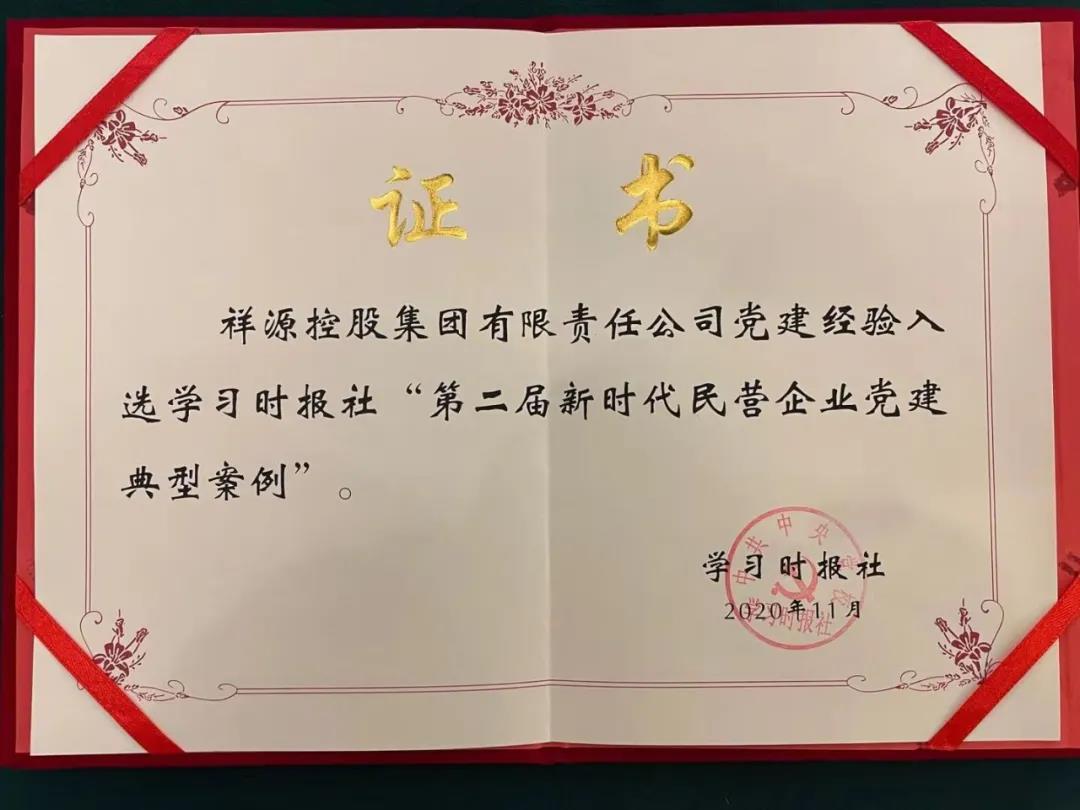 证书
祥源控股集团有限责任公司党建经验入
选学习时报社“第二届新时代民营企业党建
典型案例”。
中共中央党校
学习时报社
2020年11月
学习时报社